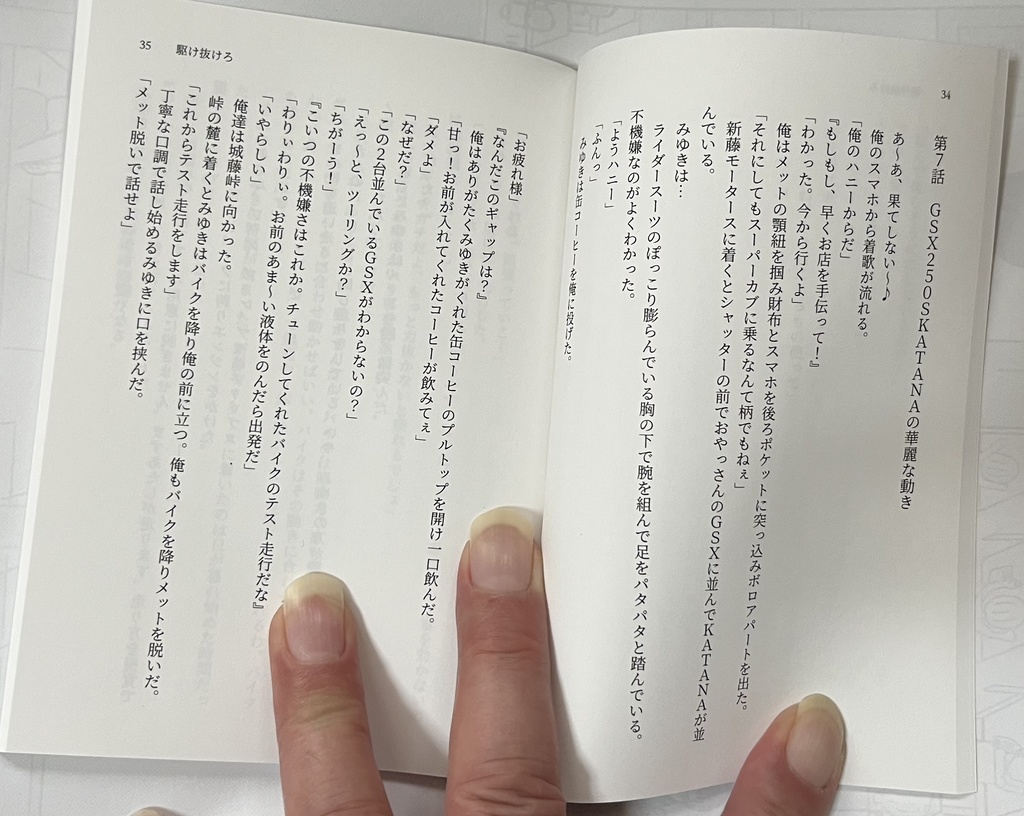 34
第7話 GSX250SKATANAの華麗な動き
あ〜あ、果てしない〜♪
俺のスマホから着歌が流れる。
「俺のハニーからだ」
『もしもし、早くお店を手伝って！』
「わかった。今から行くよ」
俺はメットの顎紐を掴み財布とスマホを後ろポケットに突っ込みボロアパートを出た。
「それにしてもスーパーカブに乗るなんて柄でもねぇ」
新藤モータースに着くとシャッターの前でおやっさんのGSXに並んでKATANAが並
んでいる。
みゆきは…
ライダースーツのぽっこり膨らんでいる胸の下で腕を組んで足をパタパタと踏んでいる。
不機嫌なのがよくわかった。
「ようハニー」
「ふんっ」
みゆきは缶コーヒーを俺に投げた。
35 駆け抜けろ
「お疲れ様」
『なんだこのギャップは？』
俺はありがたくみゆきがくれた缶コーヒーのプルトップを開け一口飲んだ。
「甘っ！お前が入れてくれたコーヒーが飲みてぇ」
「ダメよ」
「なぜだ？」
「この2台並んでいるGSXがわからないの？」
「えっ〜と、ツーリングか？」
「ちがーう！」
『こいつの不機嫌さはこれか。チューンしてくれたバイクのテスト走行だな』
「わりぃわりぃ。お前のあま〜い液体をのんだら出発だ」
「いやらしい」
俺達は城藤峠に向かった。
峠の麓に着くとみゆきはバイクを降り俺の前に立つ。俺もバイクを降りメットを脱いだ。
「これからテスト走行をします」
丁寧な口調で話し始めるみゆきに口を挟んだ。
「メット脱いで話せよ」